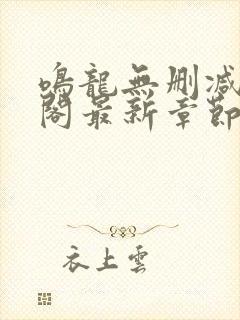 鳴龍無刪減
閣最新章節
衣上雲